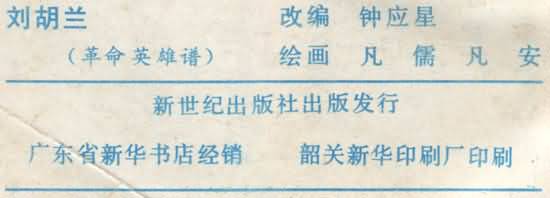 刘胡兰 改编 钟应星
（革命英雄谱） 绘画 凡儒 凡安
新世纪出版社出版发行
广东省新华书店经销 韶关新华印刷厂印刷